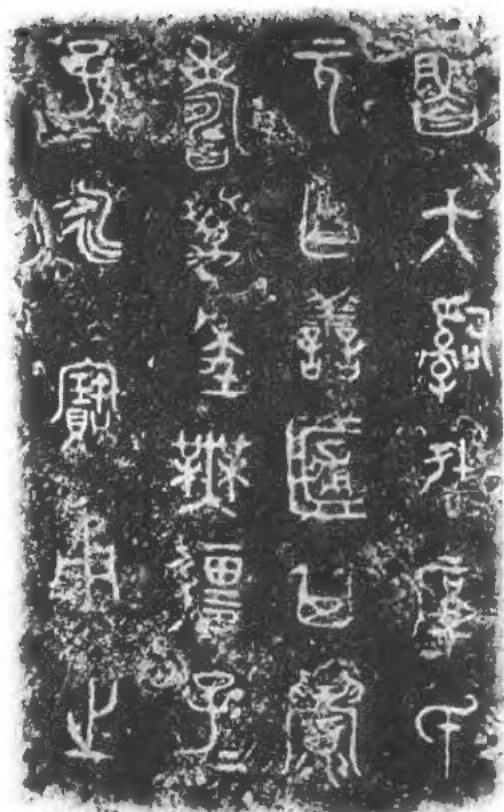 魯大嗣徒厚氏
元乍譱簠其眉
壽萬年無疆子=
孫=永寶用之